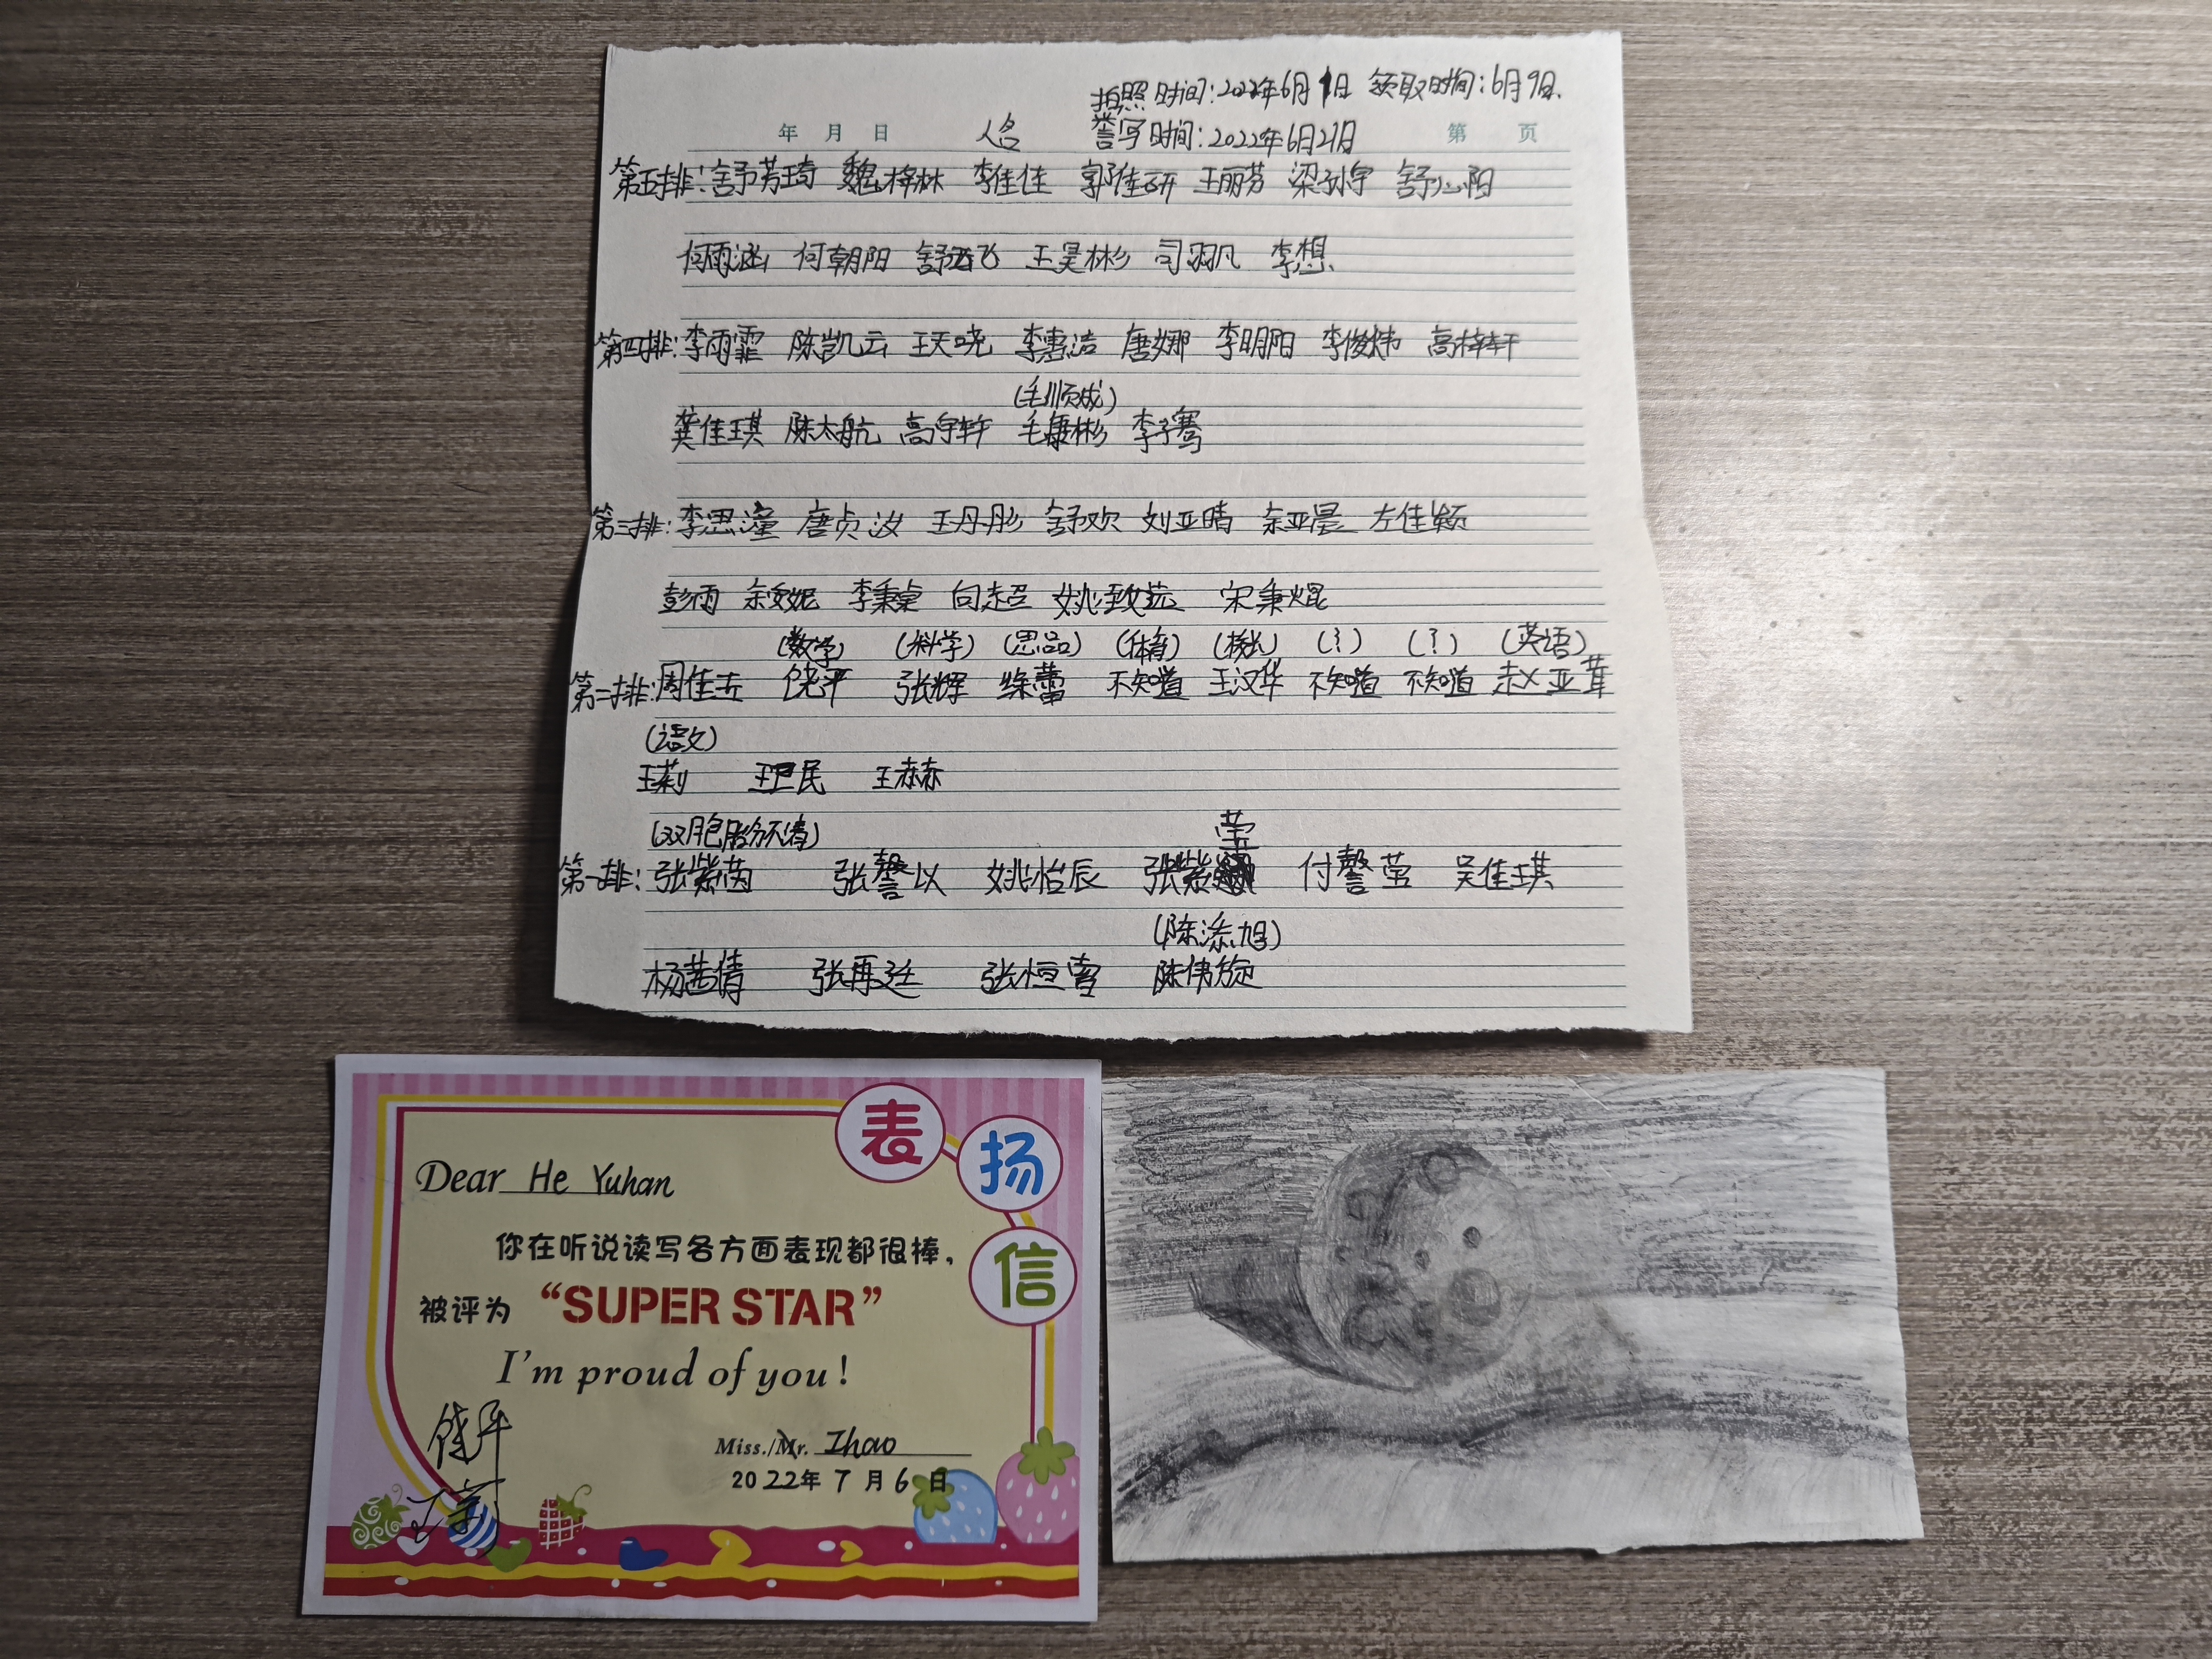 拍照时间:2022年6月1日 领取时间:6月9日
年 月 日 人名 誊写时间:2022年6月21日 第 页
第五排:舒芳琦 魏梓林 李佳佳 郭佳研 王丽芬 梁孙宇 舒心阳
何雨涵 何朝阳 舒远飞 王昊彬 司羽凡 李想
第四排:李雨霏 陈凯云 王天晓 李惠洁 唐娜 李明阳 李俊炜 高梓轩
(毛顺成)
龚佳琪 陈太航 高宇轩 毛康彬 李子骞
第三排:李思潼 唐贞汝 王丹彤 舒欢 刘亚晴 余亚晨 左佳颖
彭雨 余奕妮 李秉桌 向超 姚致远 宋秉焜
(数学) (科学) (思品) (体育) (校长) (?) (?) (英语)
第二排:周佳 饶平 张辉 徐蕾 不知道 王汉华 不知道 不知道 赵亚茸
(语文)
王莉 王卫民 王赫赫
(双胞胎分不清) 莹
第一排:张紫茵 张馨以 姚怡辰 张紫 付馨莹 吴佳琪
(陈添旭)
杨茜倩 张再廷 张恒
陈伟旋
表扬信
Dear He Yuhan
你在听说读写各方面表现都很棒,
被评为 “SUPER STAR”
I'm proud of you!
饶平
Miss./Mr. Zhao
2022年7月6日
王莉